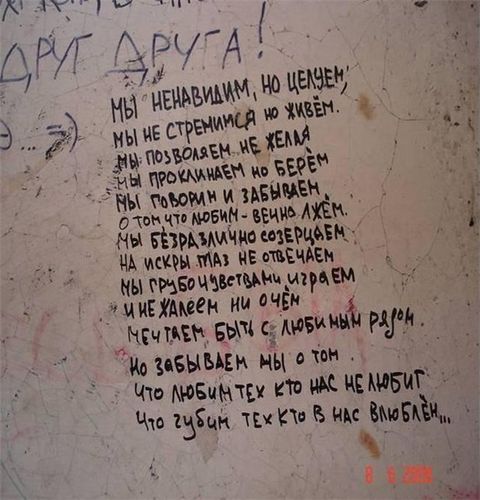 ДРУГ ДРУГА!
:) ... =)
МЫ НЕНАВИДИМ, НО ЦЕЛУЕМ,
МЫ НЕ СТРЕМИМСЯ НО ЖИВЁМ.
МЫ ПОЗВОЛЯЕМ НЕ ЖЕЛАЯ
МЫ ПРОКЛИНАЕМ НО БЕРЁМ
МЫ ГОВОРИМ И ЗАБЫВАЕМ
О ТОМ ЧТО ЛЮБИМ - ВЕЧНО ЛЖЁМ.
МЫ БЕЗРАЗЛИЧНО СОЗЕРЦАЕМ
НА ИСКРЫ ГЛАЗ НЕ ОТВЕЧАЕМ
МЫ ГРУБО ЧУВСТВАМИ ИГРАЕМ
И НЕ ЖАЛЕЕМ НИ О ЧЁМ
МЕЧТАЕМ БЫТЬ С ЛЮБИМЫМ РЯДОМ.
НО ЗАБЫВАЕМ МЫ О ТОМ.
ЧТО ЛЮБИМ ТЕХ КТО НАС НЕ ЛЮБИТ
ЧТО ГУБИМ ТЕХ КТО В НАС ВЛЮБЛЁН...